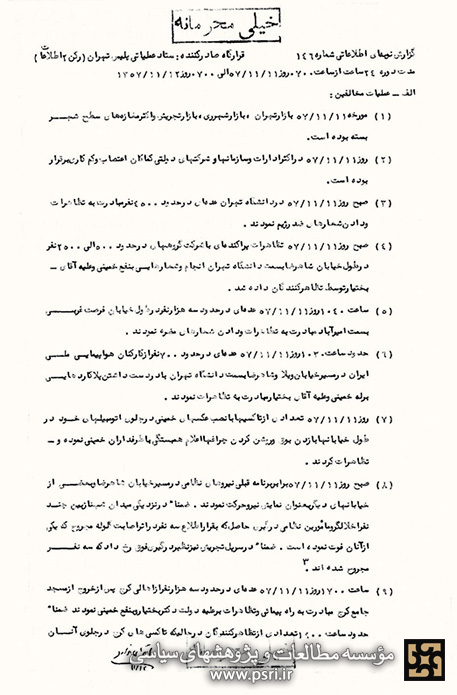 خیلی محرمانه
گزارش نوبه‌ای اطلاعاتی شماره ۱۴۶ قرارگاه صادرکننده : ستاد عملیاتی پلیس تهران (رکن ۲ اطلاعات)
مدت دوره ۲۴ ساعت از ساعت ۰۷۰۰ روز ۵۷/۱۱/۱۱ الی ۰۷۰۰ روز ۱۳۵۷/۱۱/۱۲
الف ـ عملیات مخالفین :
(۱) مورخه ۵۷/۱۱/۱۱ بازار تهران ، بازار شهرری ، بازار تجریش و اکثر مغازه‌های سطح شهر
بسته بوده است .
(۲) روز ۵۷/۱۱/۱۱ در اکثر ادارات و سازمانها و شرکتهای دولتی کماکان اعتصاب و کم کاری برقرار
بوده است .
(۳) صبح روز ۵۷/۱۱/۱۱ در دانشگاه تهران عده‌ای در حدود ۲۵۰۰ نفر مبادرت به تظاهرات
ودادن شعارهای ضد رژیم نمودند .
(۴) صبح روز ۵۷/۱۱/۱۱ تظاهرات پراکنده‌ای با شرکت گروههای در حدود ۵۰۰ الی ۲۵۰۰ نفر
در طول خیابان شاهرضا بسمت دانشگاه تهران انجام و شعارهایی بنفع خمینی و علیه آقای ـ
بختیار توسط تظاهرکنندگان داده شد .
(۵) ساعت ۱۰۴۰ روز ۵۷/۱۱/۱۱ عده‌ای در حدود سه هزار نفر در طول خیابان فرصت
بسمت امیرآباد مبادرت به تظاهرات ودادن شعارهای مضره نمودند .
(۶) حدود ساعت ۱۰۳۰ روز ۵۷/۱۱/۱۱ عده‌ای در حدود ۷۰۰ نفر از کارکنان هواپیمایی ملی
ایران در مسیر خیابان ویلا و شاهرضا بسمت دانشگاه تهران با در دست داشتن پلاکاردهایی
برله خمینی و علیه آقای بختیار مبادرت به تظاهرات نمودند .
(۷) روز ۵۷/۱۱/۱۱ تعدادی از تاکسیها با نصب عکسهای خمینی در جلوی اتومبیلهای خود در
طول خیابانها با زدن بوق و روشن کردن چراغها اعلام همبستگی با طرفداران خمینی نموده و ـ
تظاهرات کردند .
(۸) صبح روز ۵۷/۱۱/۱۱ برابر برنامه قبلی نیروهای نظامی در مسیر خیابان شاهرضا و بعضی از
خیابانهای دیگر بعنوان نمایش نیرو حرکت نمودند . ضمناً در نزدیکی میدان چند
نفر اخلالگر و مأمورین نظامی درگیری حاصل که بقرار اطلاع سه نفر در اثر اصابت گلوله مجروح که یکی
از آنان فوت نموده است . ضمناً در سرپل تجریش نیز نظیر درگیری فوق رخ داد که سه نفر
مجروح شده اند .
(۹) ساعت ۱۷۰۰ روز ۵۷/۱۱/۱۱ عده‌ای در حدود سه هزار نفر از اهالی کرج پس از خروج از مسجد
جامع کرج مبادرت به راه پیمائی و تظاهرات بر علیه دولت دکتر بختیار و بنفع خمینی نمودند ضمناً
حدود ساعت تعدادی از تظاهرکنندگان در حالیکه تاکسی های کرج در جلوی آنان
مؤسسه مطالعات و پژوهشهای سیاسی
www.psri.ir